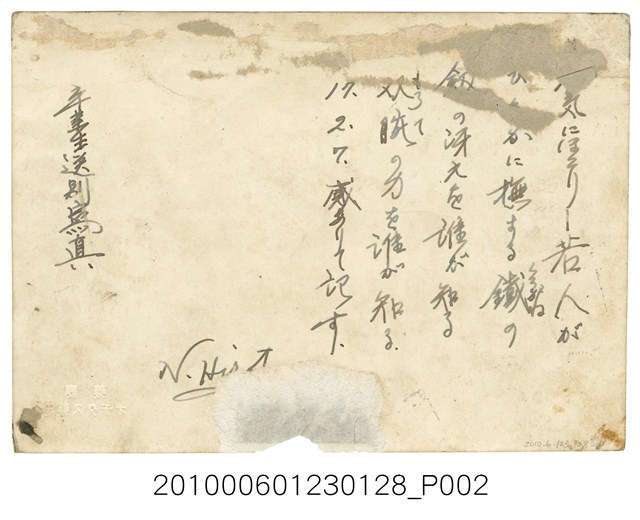 気にほこりし若人が
ひそかに撫する鐵の
剱の冴えを誰が知る
もろて
双腕の力を誰が知る
17.2.7.感ありて記す.
卒業生送別寫真
N.
2010.6.123.128
201000601230128_P002